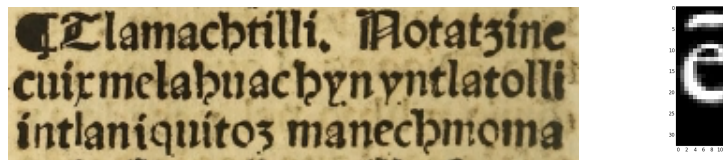 ¶Tlamachtilli. Notatzine
cuixmelahuachyn yntlatolli
intlaniquitoz manechmoma
ē
0
5
10
15
20
25
30
0 2 4 6 8 10